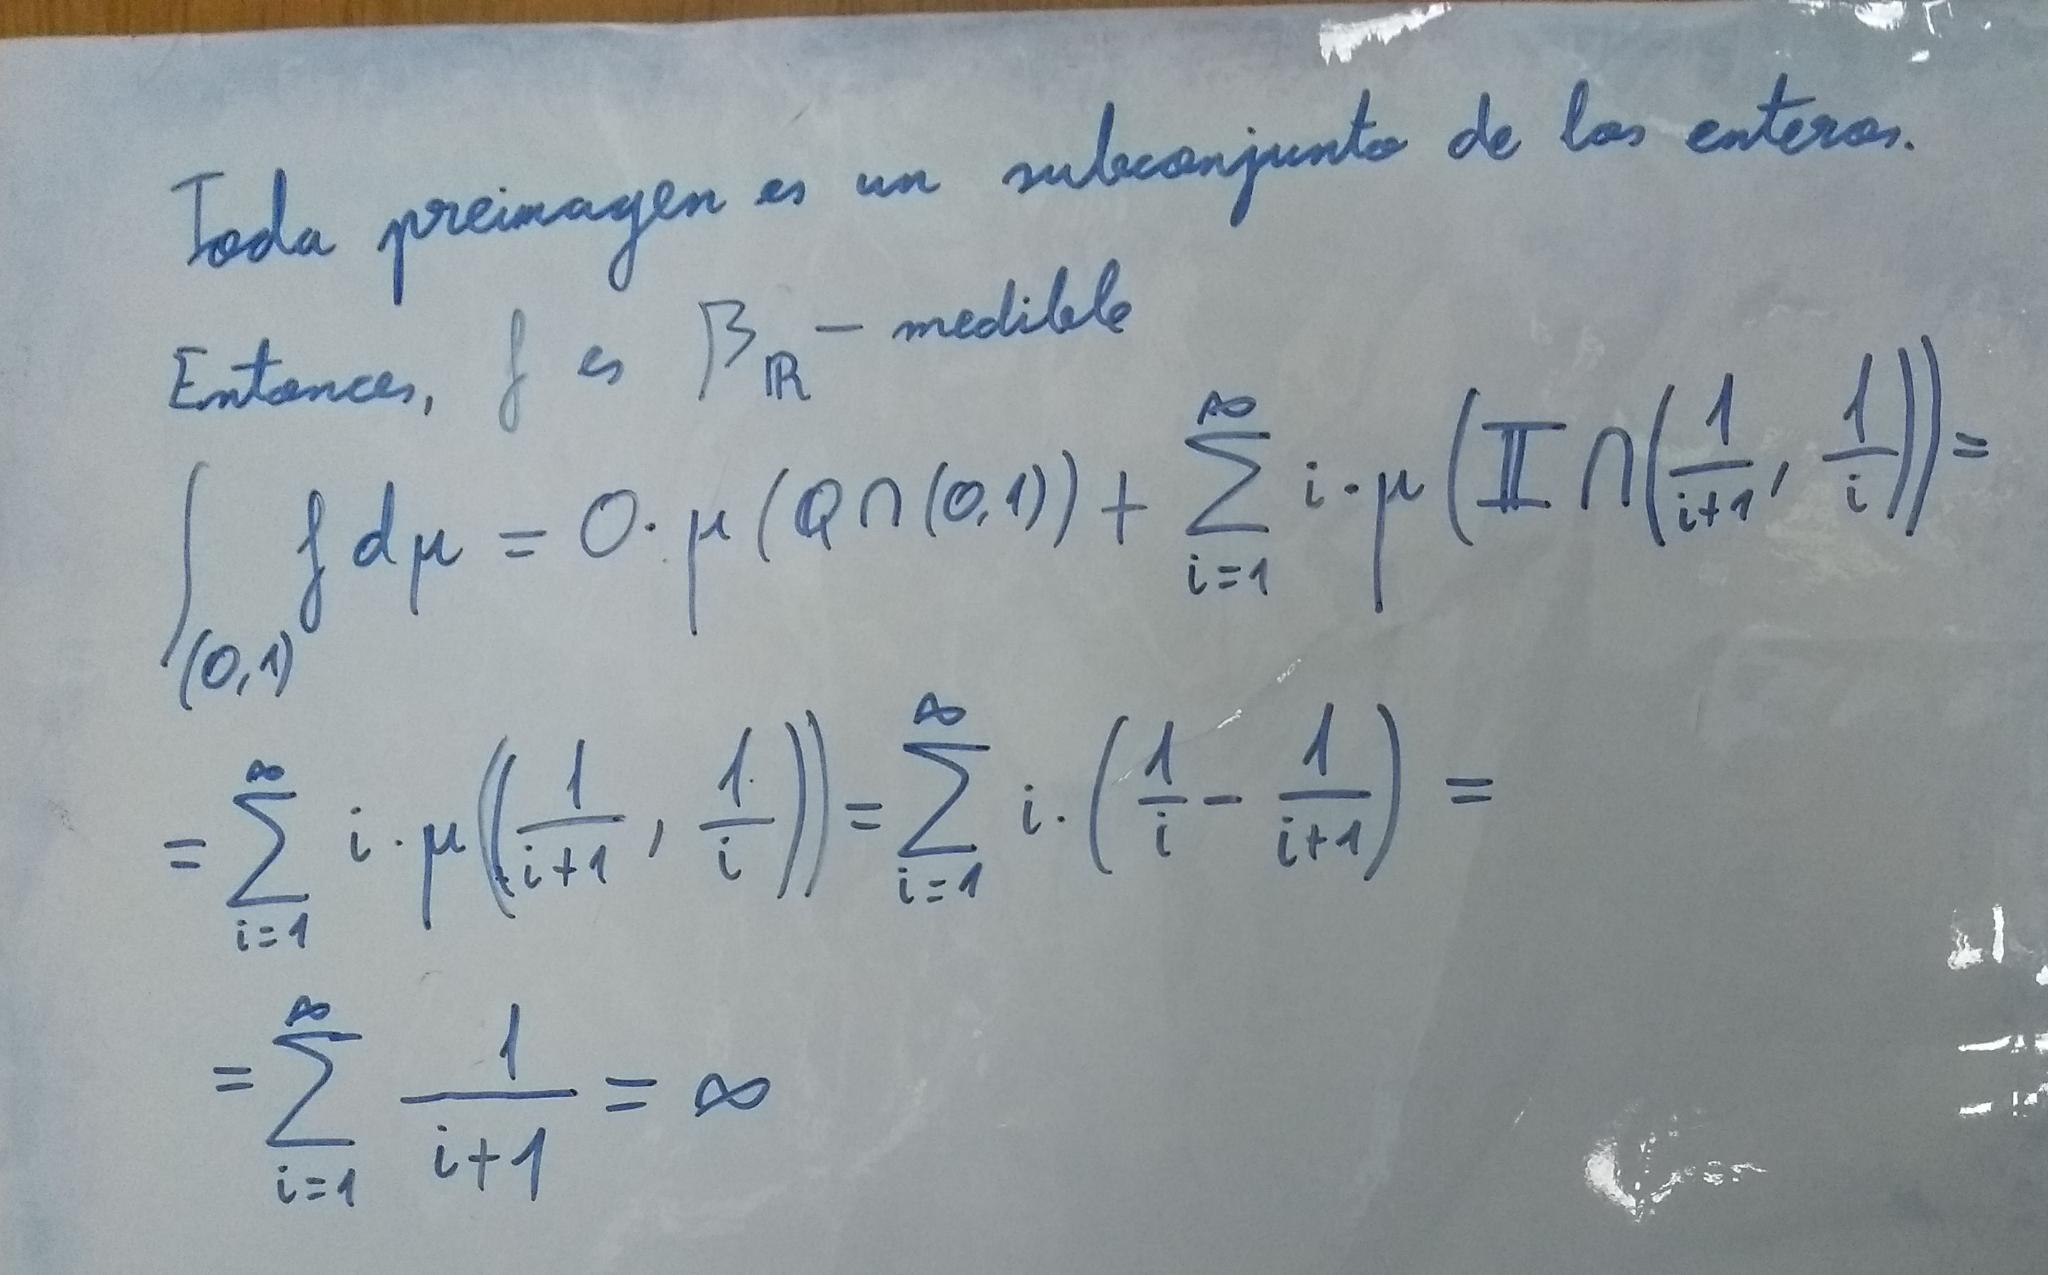 Toda preimagen es un subconjunto de los enteros.
Entonces, f es β_ℝ - medible
∫_(0,1) f dμ = 0·μ(Q∩(0,1)) + ∑_{i=1}^∞ i·μ(𝕀∩(1/(i+1), 1/i)) =
= ∑_{i=1}^∞ i·μ((1/(i+1), 1/i)) = ∑_{i=1}^∞ i·(1/i - 1/(i+1)) =
= ∑_{i=1}^∞ 1/(i+1) = ∞